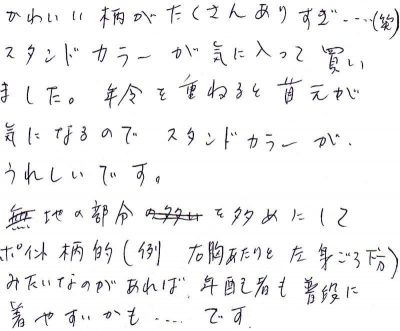 かわいい柄がたくさんありすぎ……(笑)
スタンドカラーが気に入って買い
ました。年令を重ねると首元が
気になるので スタンドカラーが、
うれしいです。
無地の部分の多い を多めにして
ポイント柄的(例 右胸あたりと左身ごろ下方)
みたいなのがあれば、年配者も普段に
着やすいかも……です